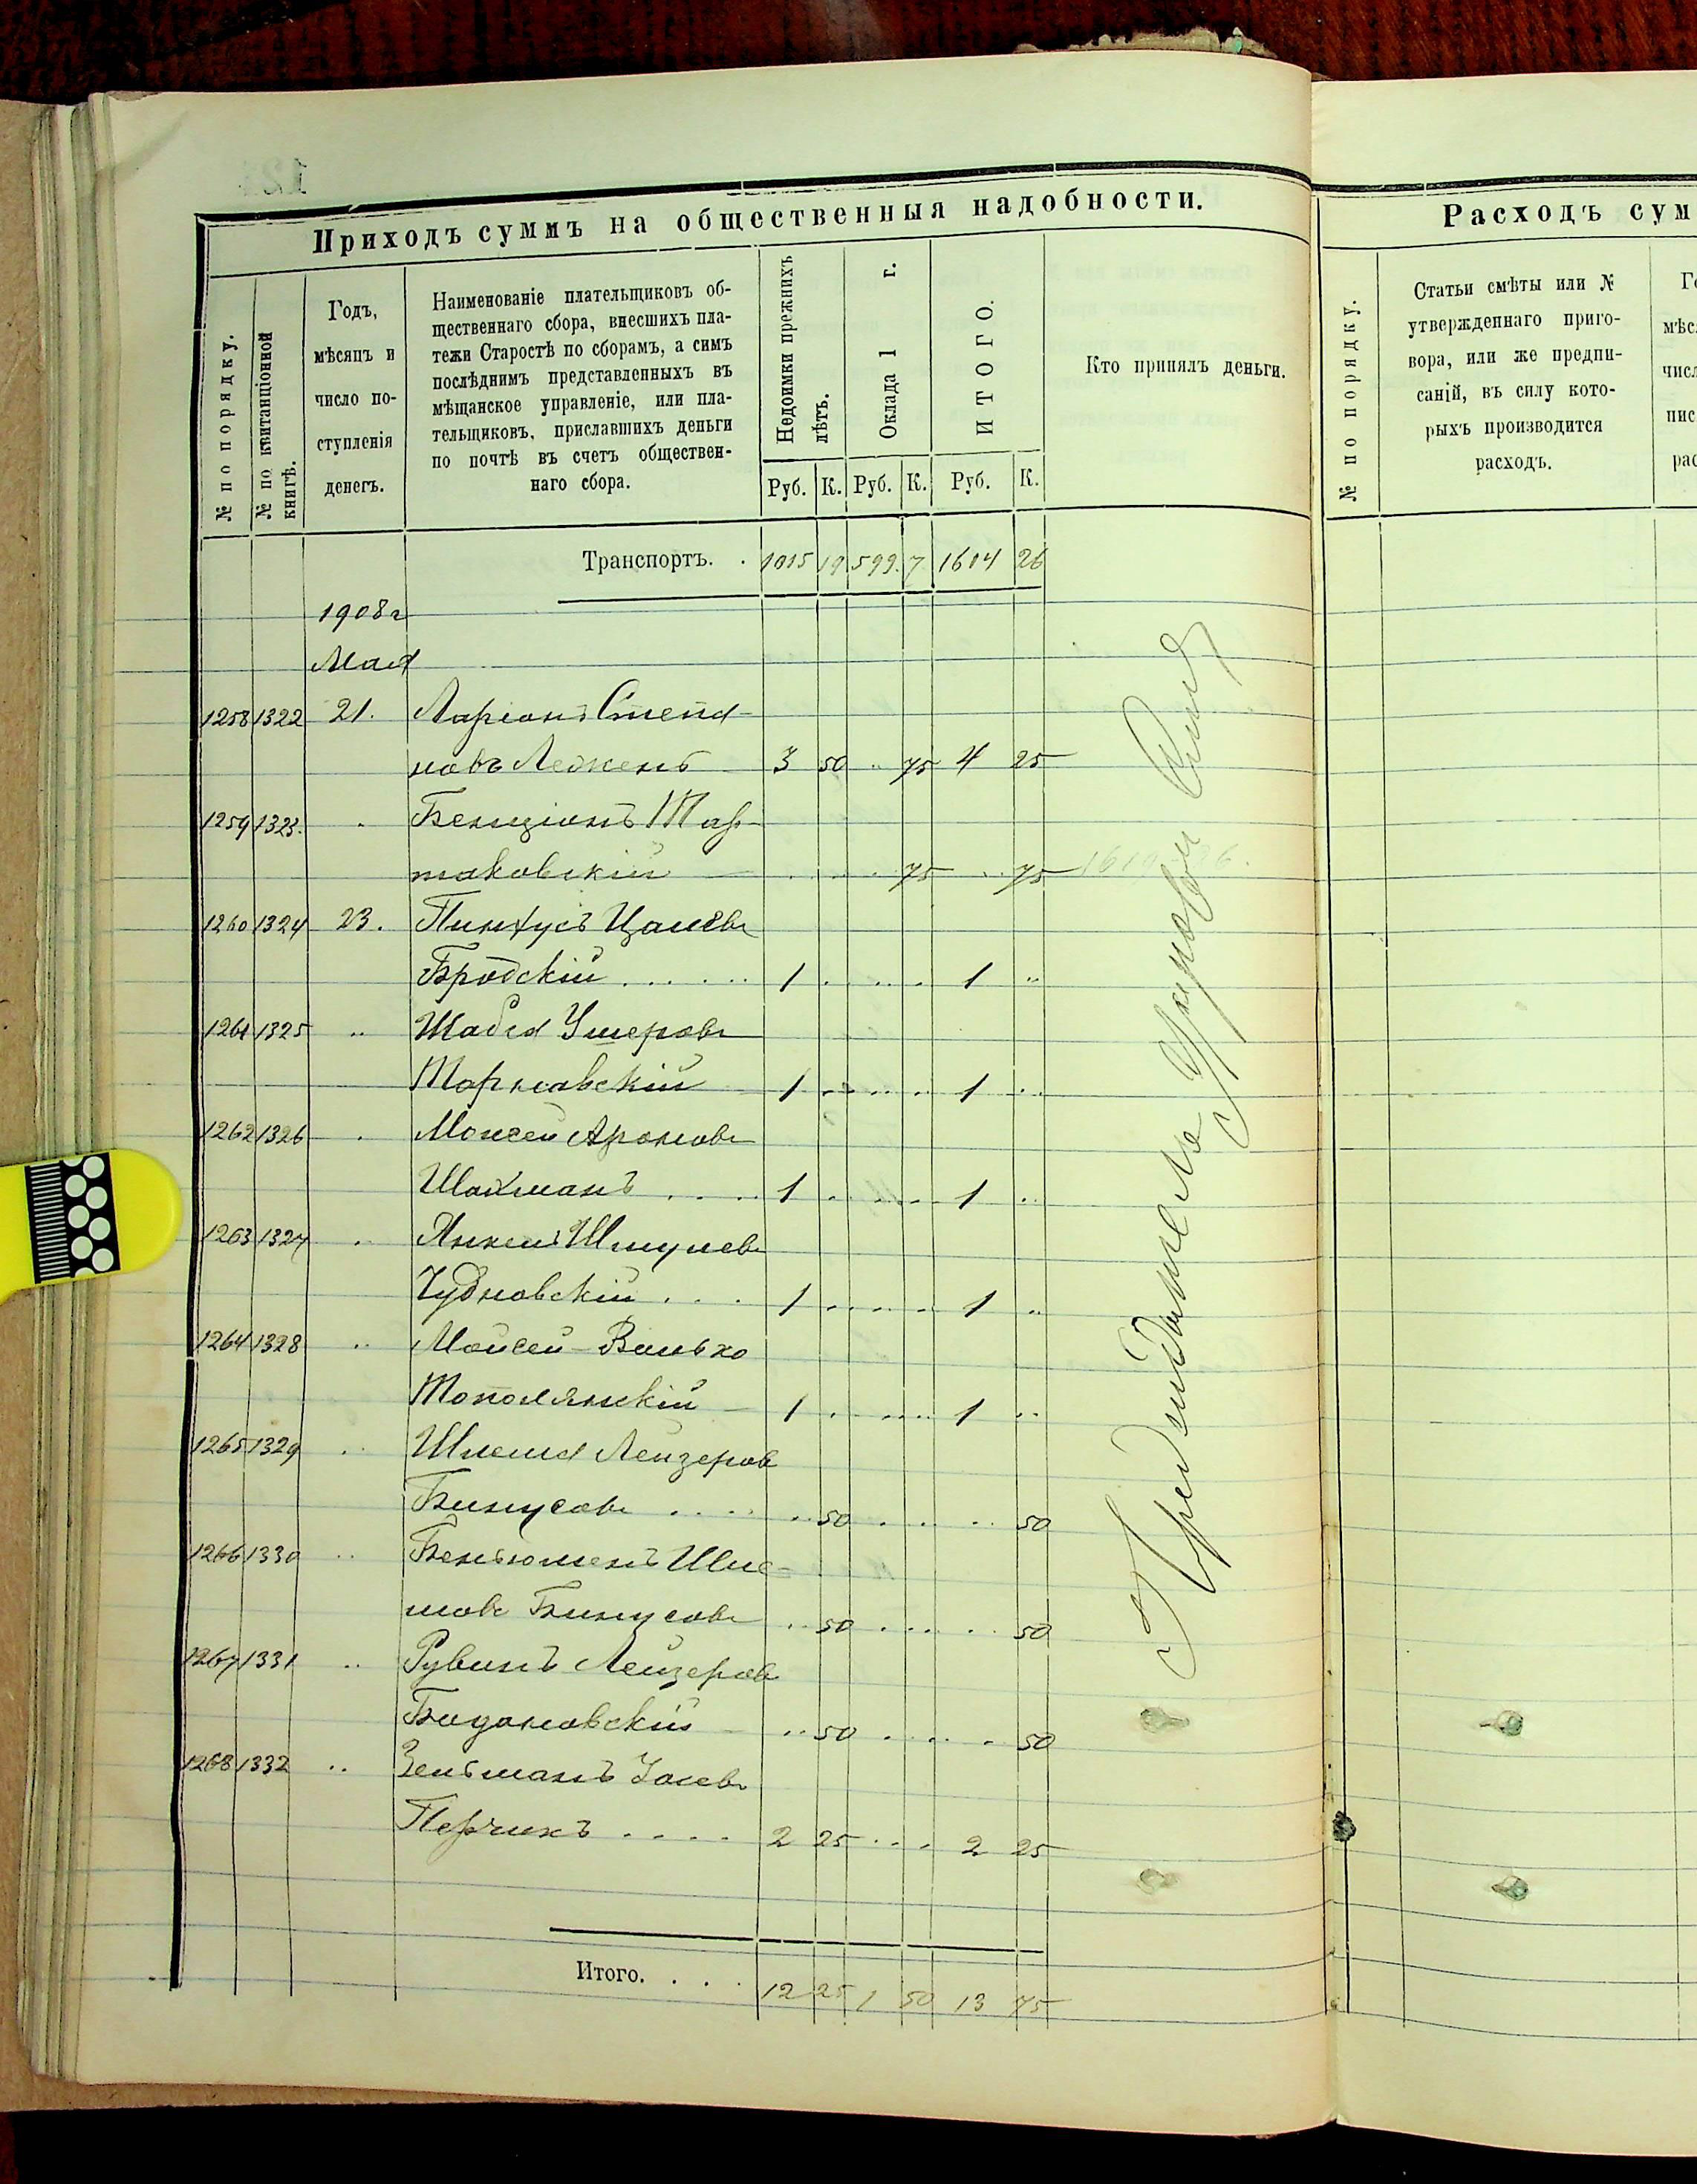 Приходъ суммъ на общественныя надобности.
№ по порядку.
№ по квитанціонной книгѣ.
Годъ,
мѣсяцъ и
число по-
ступленія
денегъ.
Наименованіе плательщиковъ об-
щественнаго сбора, внесшихъ пла-
тежи Старостѣ по сборамъ, а симъ
послѣднимъ представленныхъ въ
мѣщанское управленіе, или пла-
тельщиковъ, приславшихъ деньги
по почтѣ въ счетъ обществен-
наго сбора.
Недоимки прежнихъ лѣтъ.
Оклада 1 г.
ИТОГО.
Кто принялъ деньги.
Руб. К. Руб. К. Руб. К.
Транспортъ. . 1015 19 599. 7 1604 26
1908 г
Мая
1258 1322 21. Ларіонъ Степа-
новъ Леженъ 3 50 .. 75 4 25
1259 1323. . Бенціонъ Тар-
таковскій 75 75
1260 1324 23. Пинхусъ Цалевъ
Бродскій 1 1 ..
1261 1325 .. Шабся Ушеровъ
Торговскій 1 1 ..
1262 1326 . Моисей Ароновъ
Шойхманъ 1 1 ..
1263 1327 .. Янкель Шмулевъ
Чудновскій 1 1 ..
1264 1328 .. Мойсей-Волько
Тополянскій 1 1 ..
1265 1329 .. Шлема Лейзеров
Бинусовъ 50 50
1266 1330 .. Беньюменъ Шле-
мовъ Бинусовъ 50 50
1267 1331 .. Рувинъ Лейзеров
Богоновскій 50 50
1268 1332 .. Зельманъ Іосевъ
Перчикъ 2 25 2 25
Итого. . . . 12 25 1 50 13 75
Расходъ сум
№ по порядку.
Статьи смѣты или №
утвержденнаго приго-
вора, или же предпи-
саній, въ силу кото-
рыхъ производится
расходъ.
Го
мѣс
числ
пис
рас